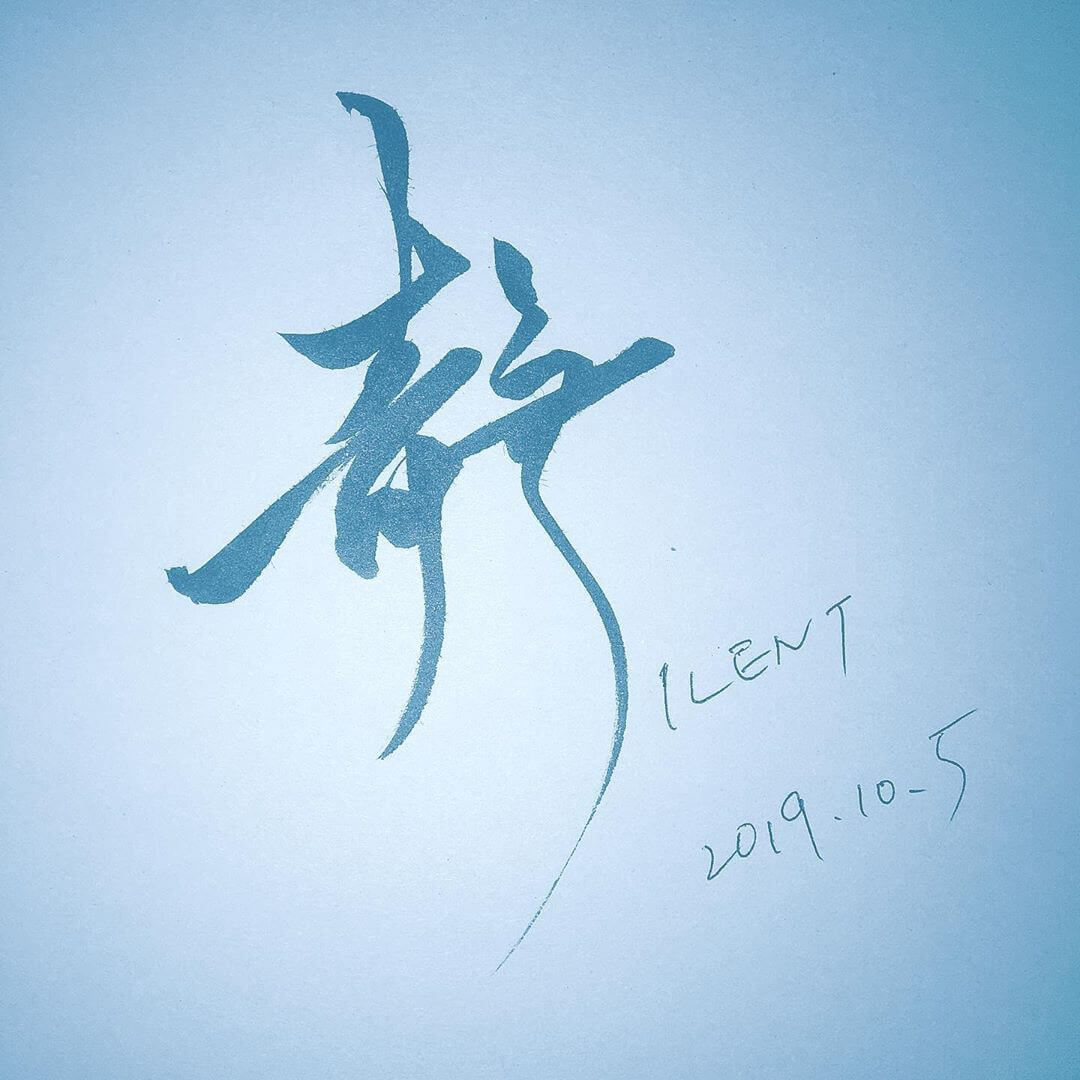 静
ILENT
2019.10-5